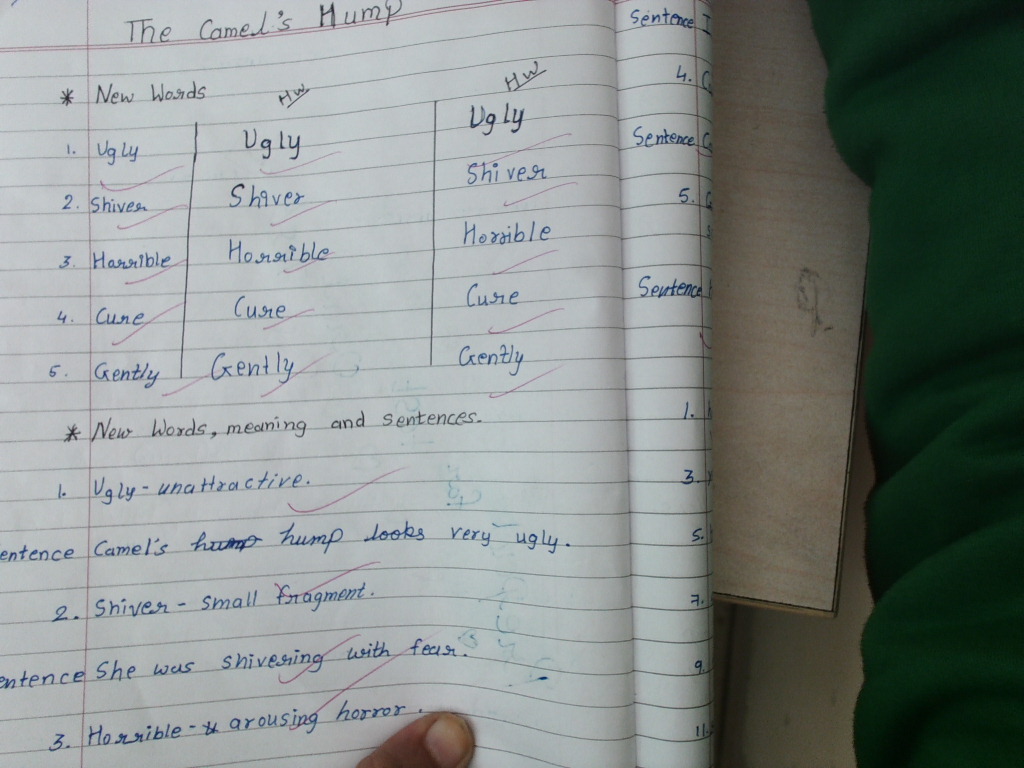 The Camel's Hump
* New Words HW HW
1. Ugly Ugly Ugly
2. Shiver Shiver Shiver
3. Harrible Horrible Horrible
4. Cure Cure Cure
5. Gently Gently Gently
* New Words, meaning and sentences.
1. Ugly - unattractive.
entence Camel's hump hump looks very ugly.
2. Shiver - small fragment.
entence She was shivering with fear.
3. Horrible - arousing horror.
Sentence
4.
Sentence
5.
Sentence
1.
3.
5.
7.
9.
11.